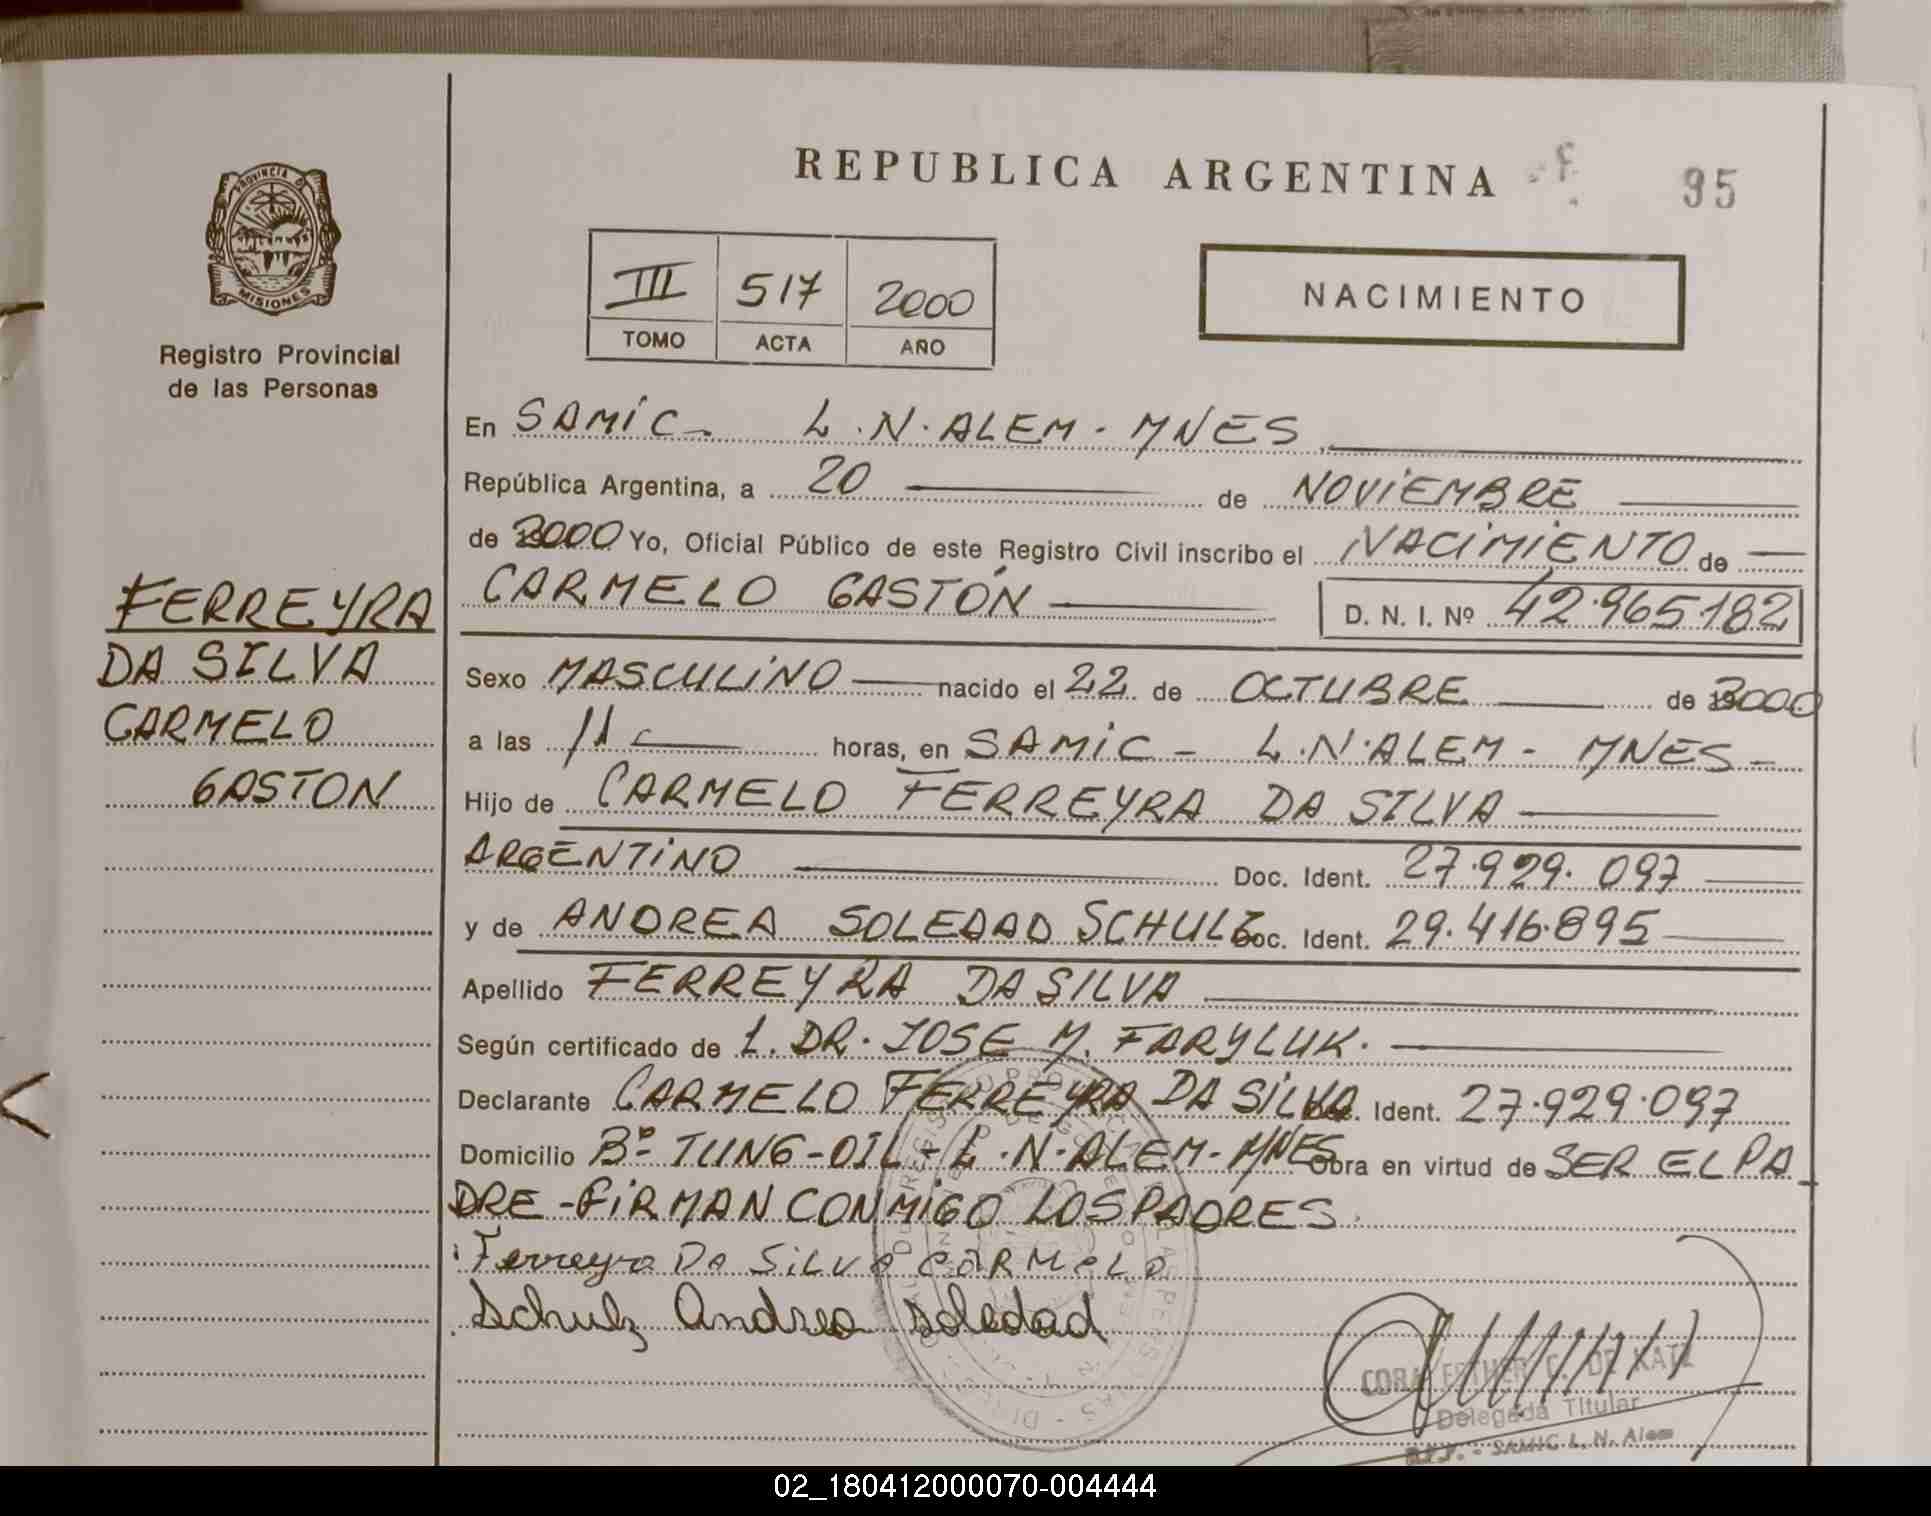 REPUBLICA ARGENTINA
95
PROVINCIA D
MISIONES
Registro Provincial
de las Personas
III 517 2000
TOMO ACTA AÑO
NACIMIENTO
En SAMIC - L.N. ALEM - MNES
República Argentina, a 20 de NOVIEMBRE
de 2000 Yo, Oficial Público de este Registro Civil inscribo el NACIMIENTO de
CARMELO GASTÓN D. N. I. Nº 42.965.182
FERREYRA
DA SILVA
CARMELO
GASTON
Sexo MASCULINO nacido el 22 de OCTUBRE de 2000
a las 11 horas, en SAMIC - L.N. ALEM - MNES -
Hijo de CARMELO FERREYRA DA SILVA
ARGENTINO Doc. Ident. 27.929.097
y de ANDREA SOLEDAD SCHULZ Doc. Ident. 29.416.895
Apellido FERREYRA DA SILVA
Según certificado de 1. DR. JOSE M. FARYLUK.
Declarante CARMELO FERREYRA DA SILVA Doc. Ident. 27.929.097
Domicilio Bº TUNG-OIL - L.N. ALEM - MNES Obra en virtud de SER EL PA
DRE - FIRMAN CONMIGO LOS PADRES.
Ferreyra Da SiLVa CARMeLO
Schulz Andrea Soledad
CORA ESTHER C. DE KATZ
Delegada Titular
R.P.P. - SAMIC L. N. Alem
02_180412000070-004444